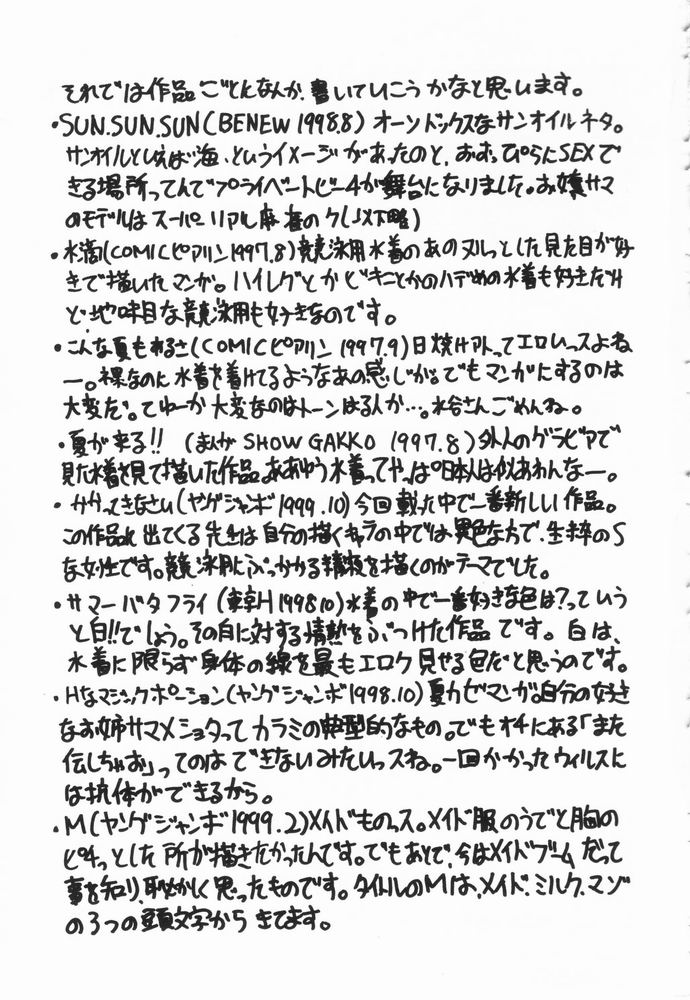 それでは作品ごとになんか、書いていこうかなと思います。
・SUN.SUN.SUN(BENEW 1998.8) オーソドックスなサンオイルネタ。
サンオイルといえば海、というイメージがあったのと、おおっぴらにSEXで
きる場所ってんでプライベートビーチが舞台になりました。お嬢サマ
のモデルはスーパーリアル麻雀のク(以下略)
・水滴(COMICピアリン1997.8)競泳用水着のあのヌルっとした見た目が好
きで描いたマンガ。ハイレグとかビキニとかのハデめの水着も好きだけ
ど、地味目な競泳用も好きなのです。
・こんな夏もあるさ(COMICピアリン 1997.9)日焼けアトってエロいっスよね
ー。裸なのに水着を着けてるようなあの感じが。でもマンガにするのは
大変だ。てゆーか大変なのはトーンはる人か…。水谷さんごめんね。
・夏が来る!! (まんがSHOW GAKKO 1997.8)外人のグラビアで
見た水着を見て描いた作品。ああゆう水着ってやっぱ日本人は似あわんなー。
・かかってきなさい(ヤングジャンボ1999.10)今回載った中で一番新しい作品。
この作品に出てくる先生は自分の描くキャラの中では異色な方で、生粋のS
な女性です。競泳用にぶっかかる精液を描くのがテーマでした。
・サマーバタフライ(東京H1998.10)水着の中で一番好きな色は?っていう
と白!!でしょう。その白に対する情熱をぶつけた作品です。白は、
水着に限らず身体の線を最もエロク見せる色だと思うのです。
・Hなマジックポーション(ヤングジャンボ1998.10)夏カゼマンガ。自分の好き
なお姉サマ×ショタってカラミの典型的なもの。でもオチにある「また
伝しちゃお」ってのはできないみたいっスね。一回かかったウィルスに
は抗体ができるから。
・M(ヤングジャンボ1999.2)メイドものっス。メイド服のうでと胸の
ピチっとした所が描きたかったんです。でもあとで、今はメイドブームだって
事を知り、恥ずかしく思ったものです。タイトルのMは、メイド、ミルク、マゾ
の3つの頭文字からきてます。